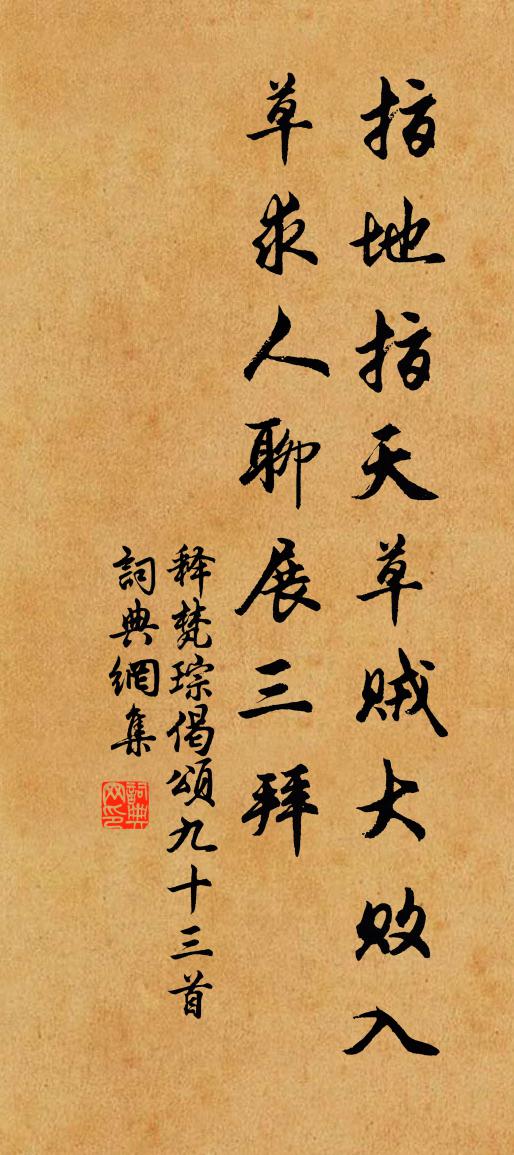 指地指天草賊大敗入
草求人聊展三拜
释梵琮偈頌九十三首
詞典網集
詞典网印